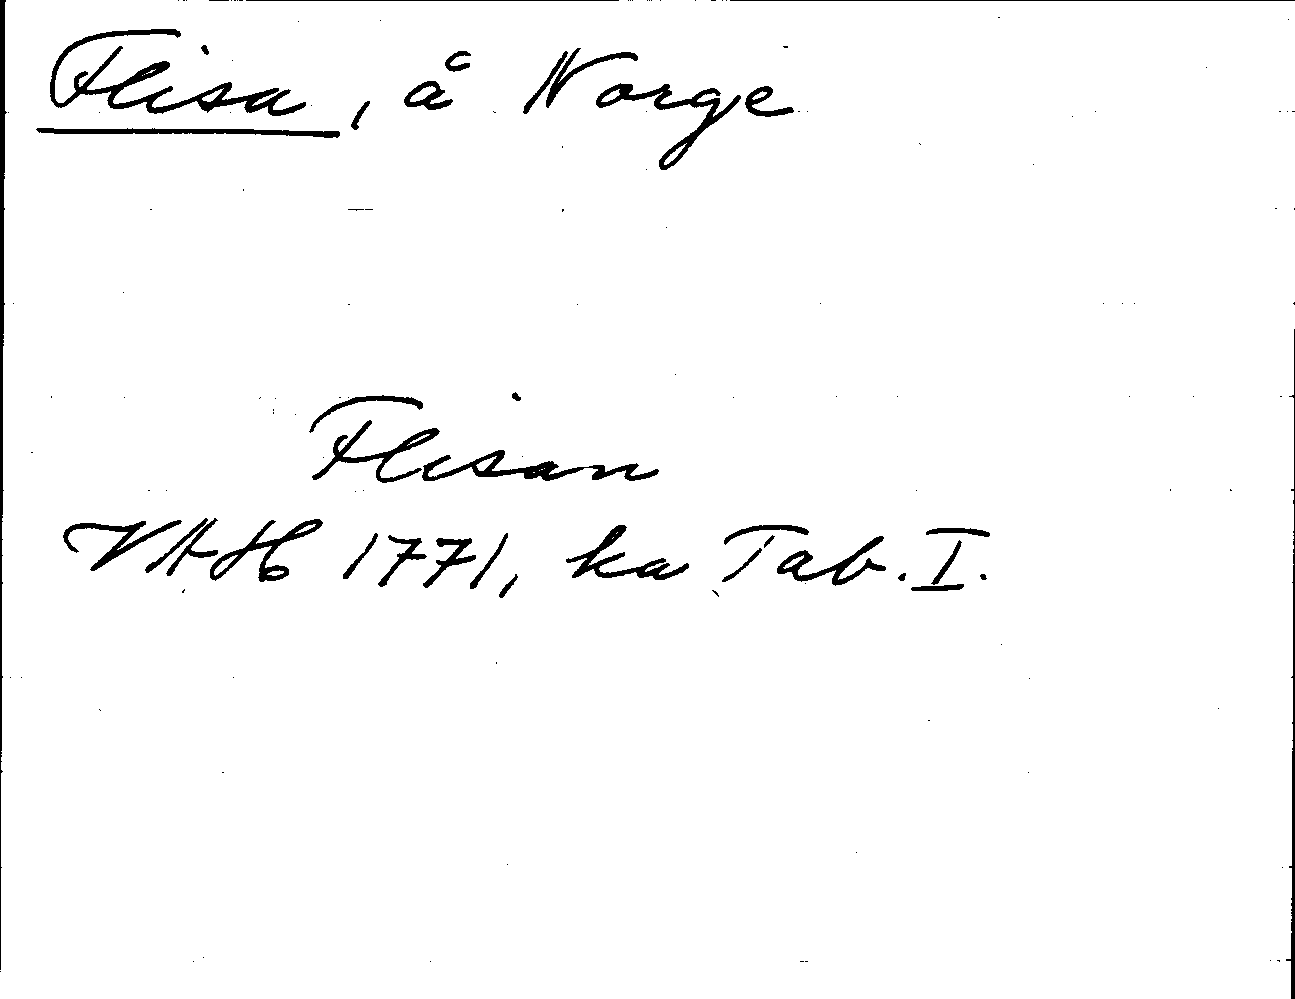 Flisa, å Norge
Flisan
VAH 1771, ka Tab. I.